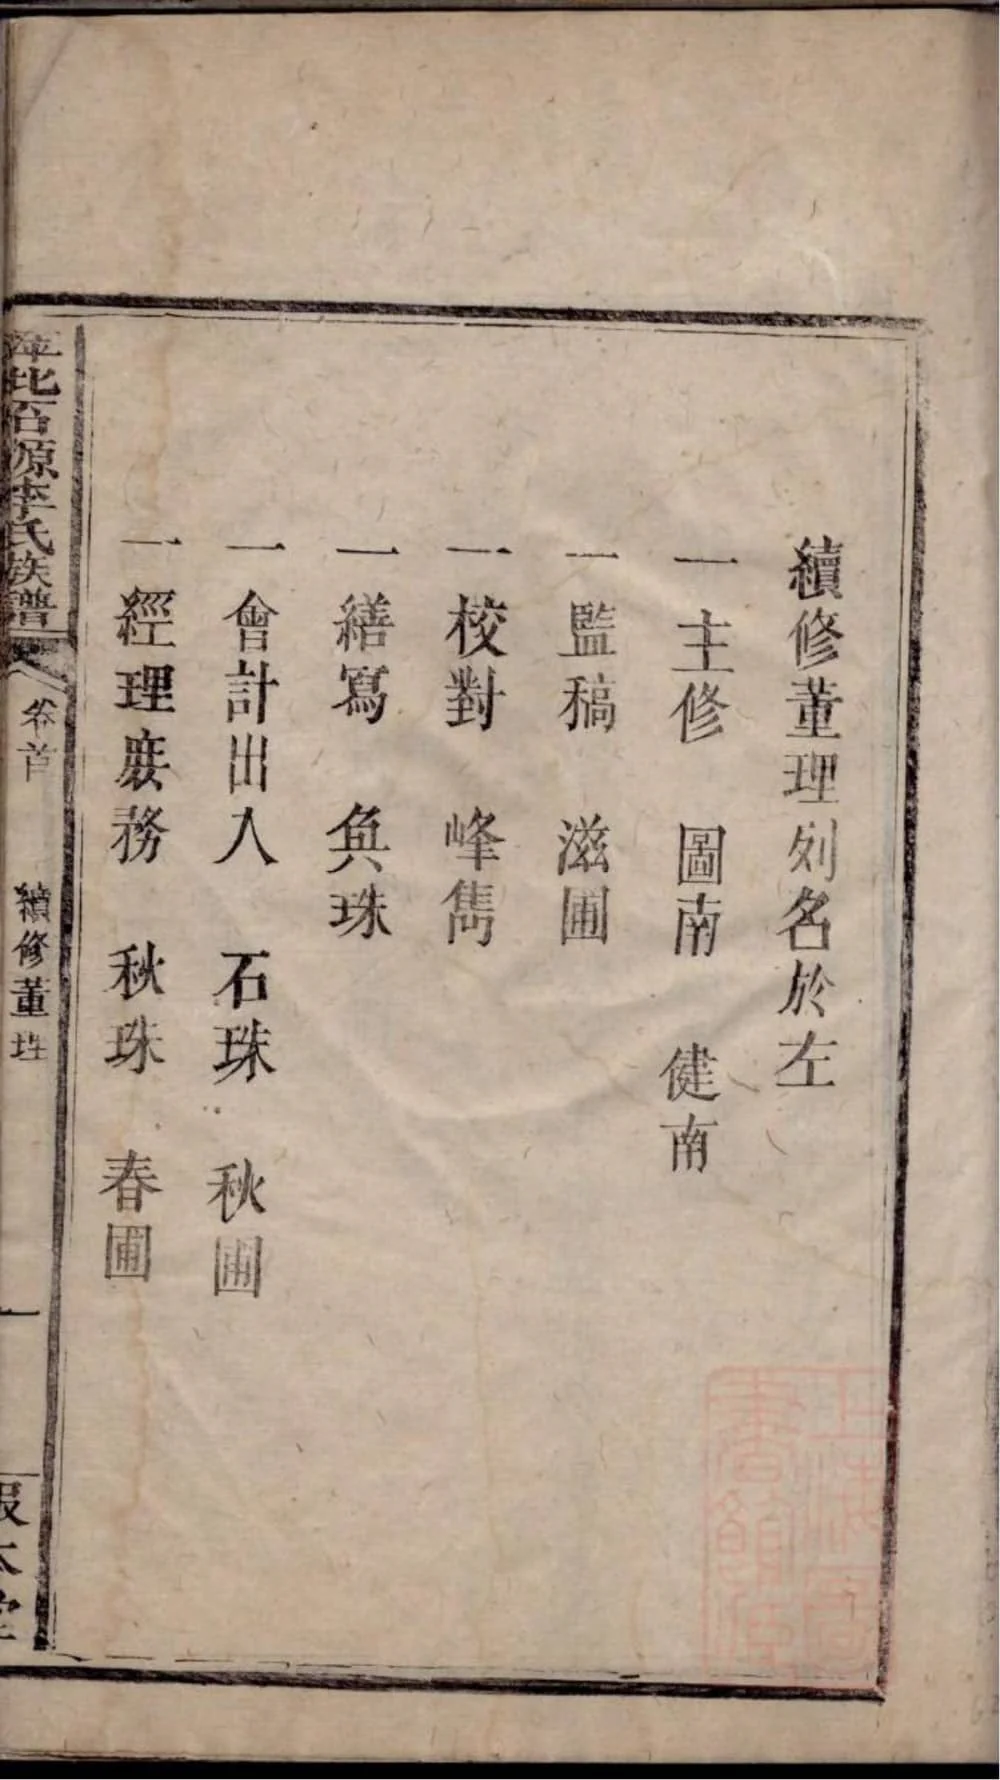 續修董理列名於左
一主修 圖南 健南
一監稿 滋圃
一校對 峰雋
一繕寫 奐珠
一會計出入 石珠 秋圃
一經理庶務 秋珠 春圃
萍北石源李氏族譜
卷首
續修董理
一
報本堂
上海圖書館藏